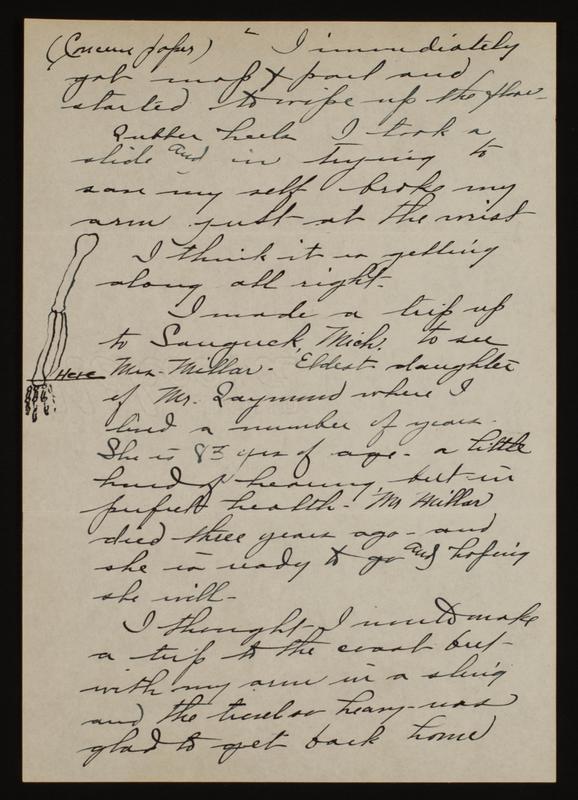 I immediately
got mop & pail and
started to wipe up the floor-
Rubber heels I took a
slide and in trying to
save my self broke my
arm just at the wrist
I think it is getting
along all right.
I made a trip up
to Sauguck, Mich. to see
HERE Mrs. Millar. Eldest daughter
of Mr. Raymond where I
lived a number of years.
She is yrs of age - a little
hard of hearing, but in
perfect health - Mr Millar
died three years ago - and
she is ready to go and hoping
she will -
I thought I would make
a trip to the coast but -
with my arm in a sling
and the travel so heavy - was
glad to get back home